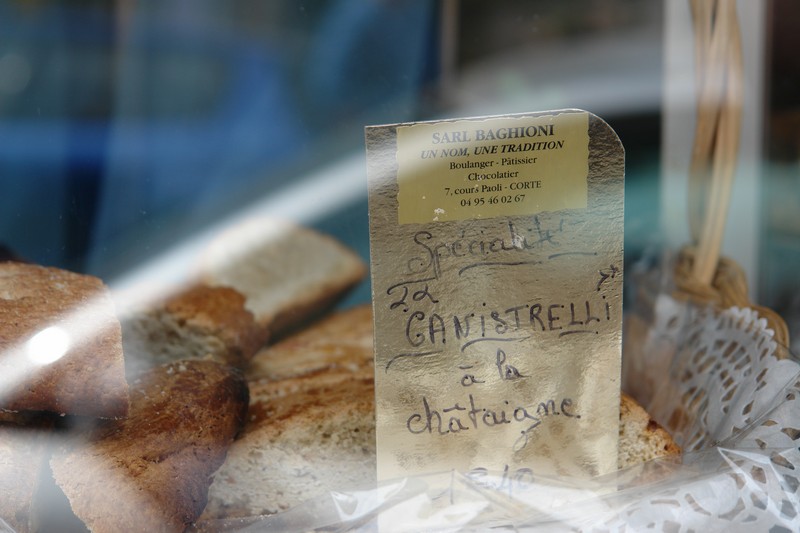 SARL BAGHIONI
UN NOM, UNE TRADITION
Boulanger - Pâtissier
Chocolatier
7, cours Paoli - CORTE
04 95 46 02 67
Spécialité
CANISTRELLI
à la
châtaigne